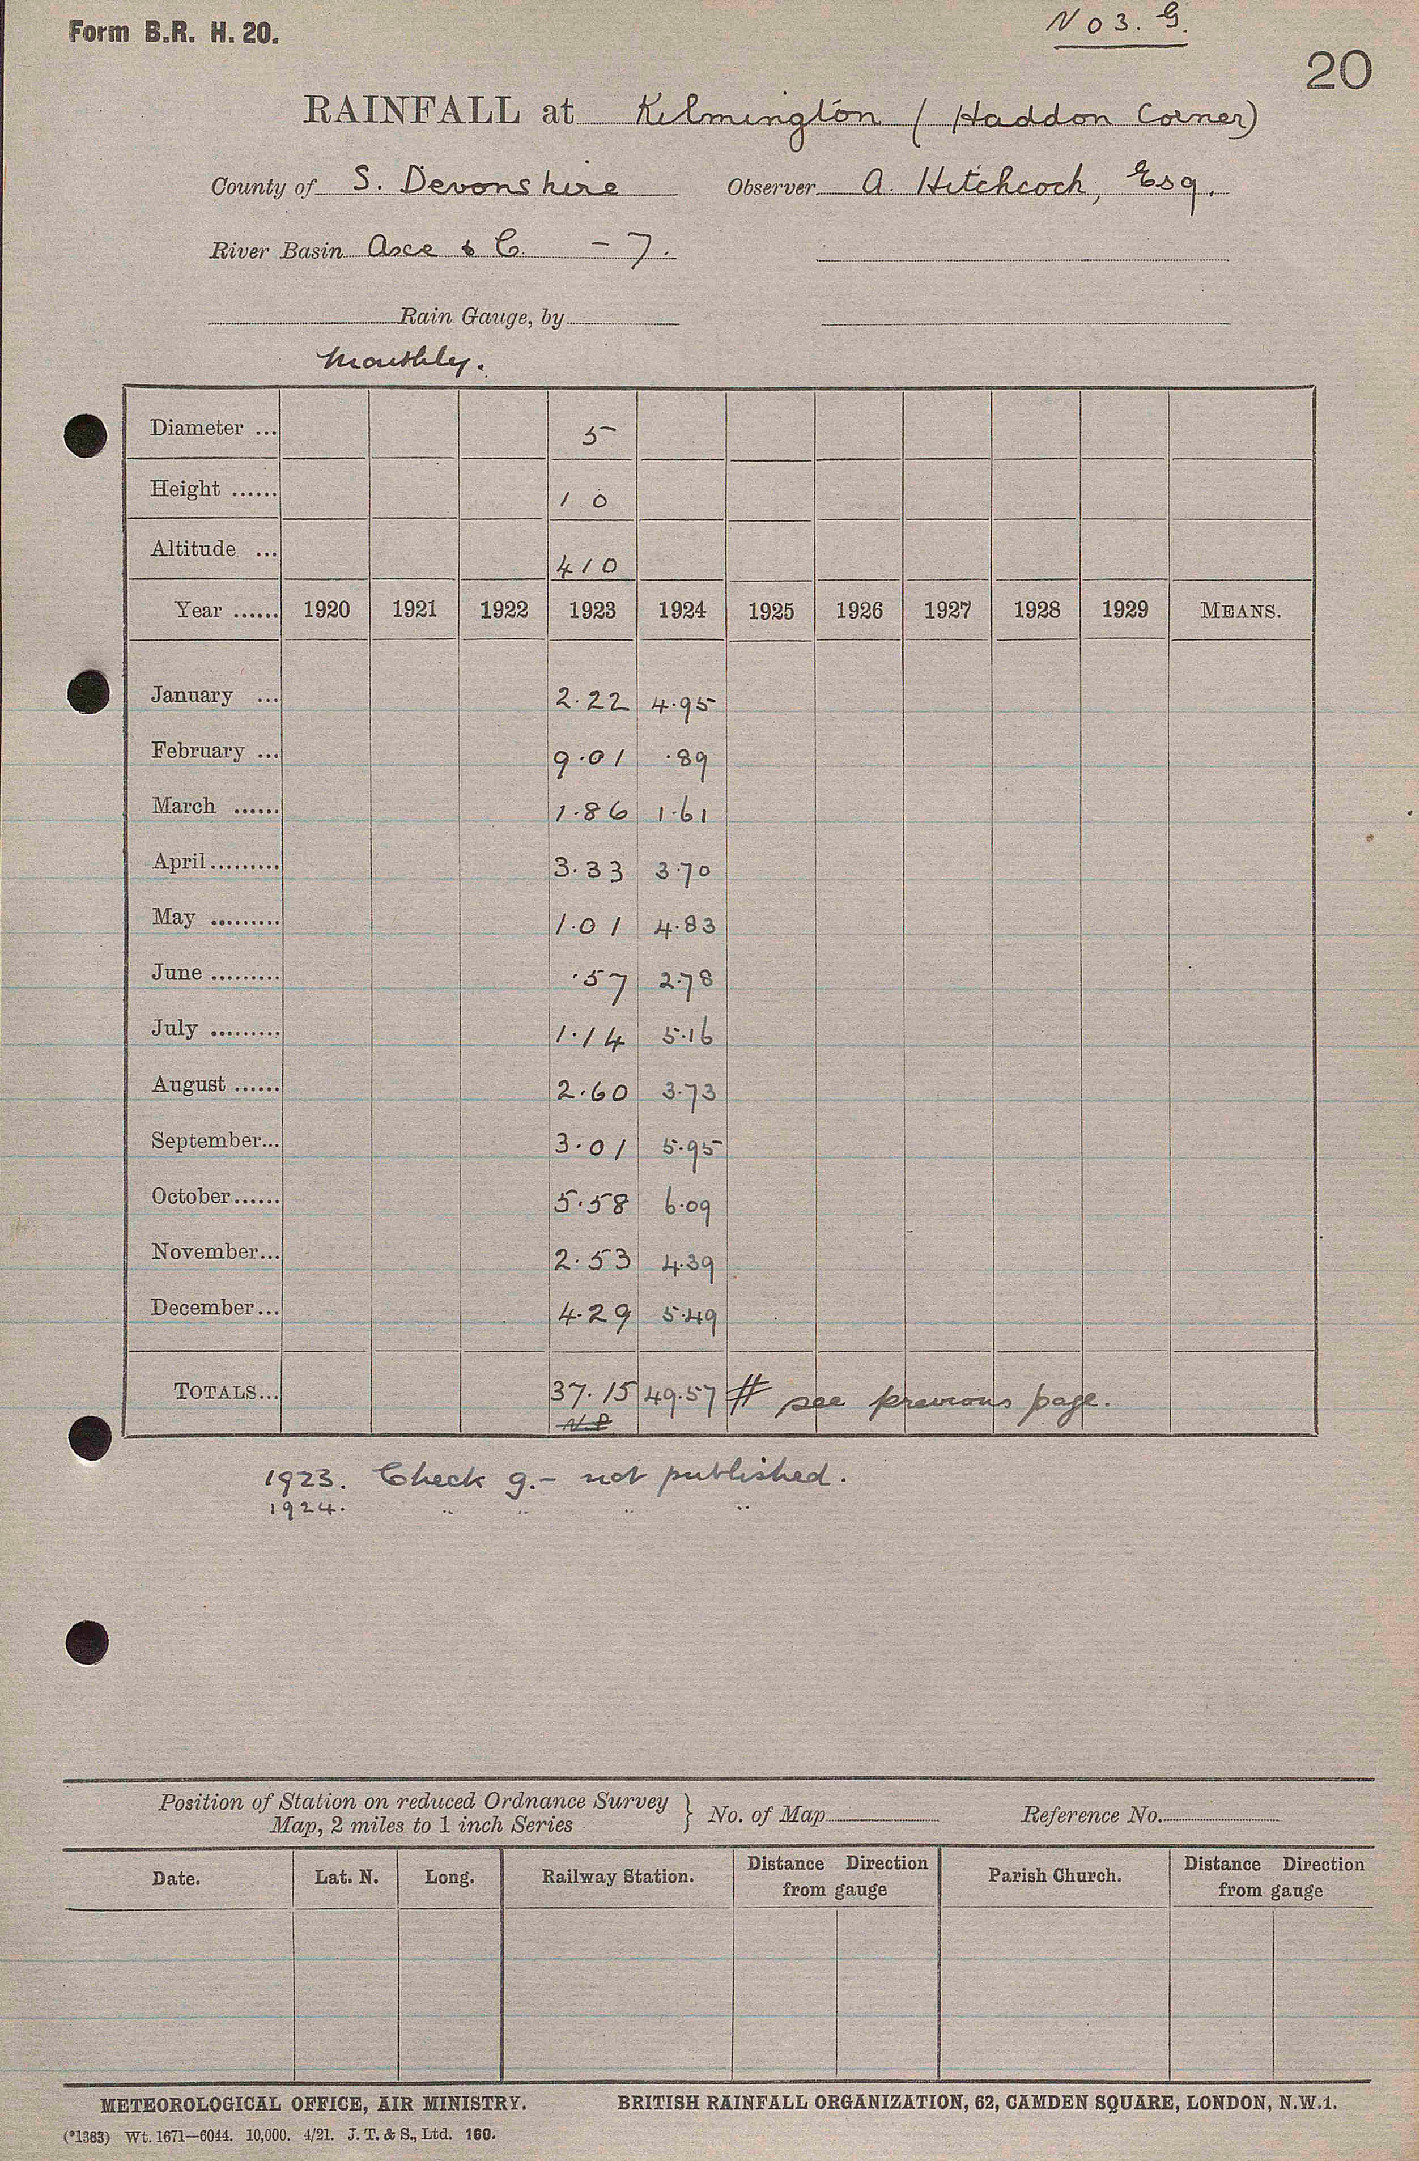 Form B.R. H. 20.
No 3. G.
20
RAINFALL at Kilmington (Haddon Corner)
County of S. Devonshire Observer A. Hitchcock, Esq.
River Basin Axe & C. - 7.
Rain Gauge, by
Monthly.
Diameter ... 5
Height ...... 1 0
Altitude ... 410
Year ...... 1920 1921 1922 1923 1924 1925 1926 1927 1928 1929 MEANS.
January ... 2.22 4.95
February ... 9.01 .89
March ...... 1.86 1.61
April ......... 3.33 3.70
May ......... 1.01 4.83
June ......... .57 2.78
July ......... 1.14 5.16
August ...... 2.60 3.73
September... 3.01 5.95
October ...... 5.58 6.09
November... 2.53 4.39
December... 4.29 5.49
TOTALS... 37.15 49.57 # see previous page.
N.P.
1923. Check g. - not published.
1924. " " " "
Position of Station on reduced Ordnance Survey
Map, 2 miles to 1 inch Series } No. of Map Reference No.
Date. Lat. N. Long. Railway Station. Distance Direction from gauge Parish Church. Distance Direction from gauge
METEOROLOGICAL OFFICE, AIR MINISTRY. BRITISH RAINFALL ORGANIZATION, 62, CAMDEN SQUARE, LONDON, N.W.1.
(*1383) Wt. 1671—6044. 10,000. 4/21. J. T. & S., Ltd. 160.